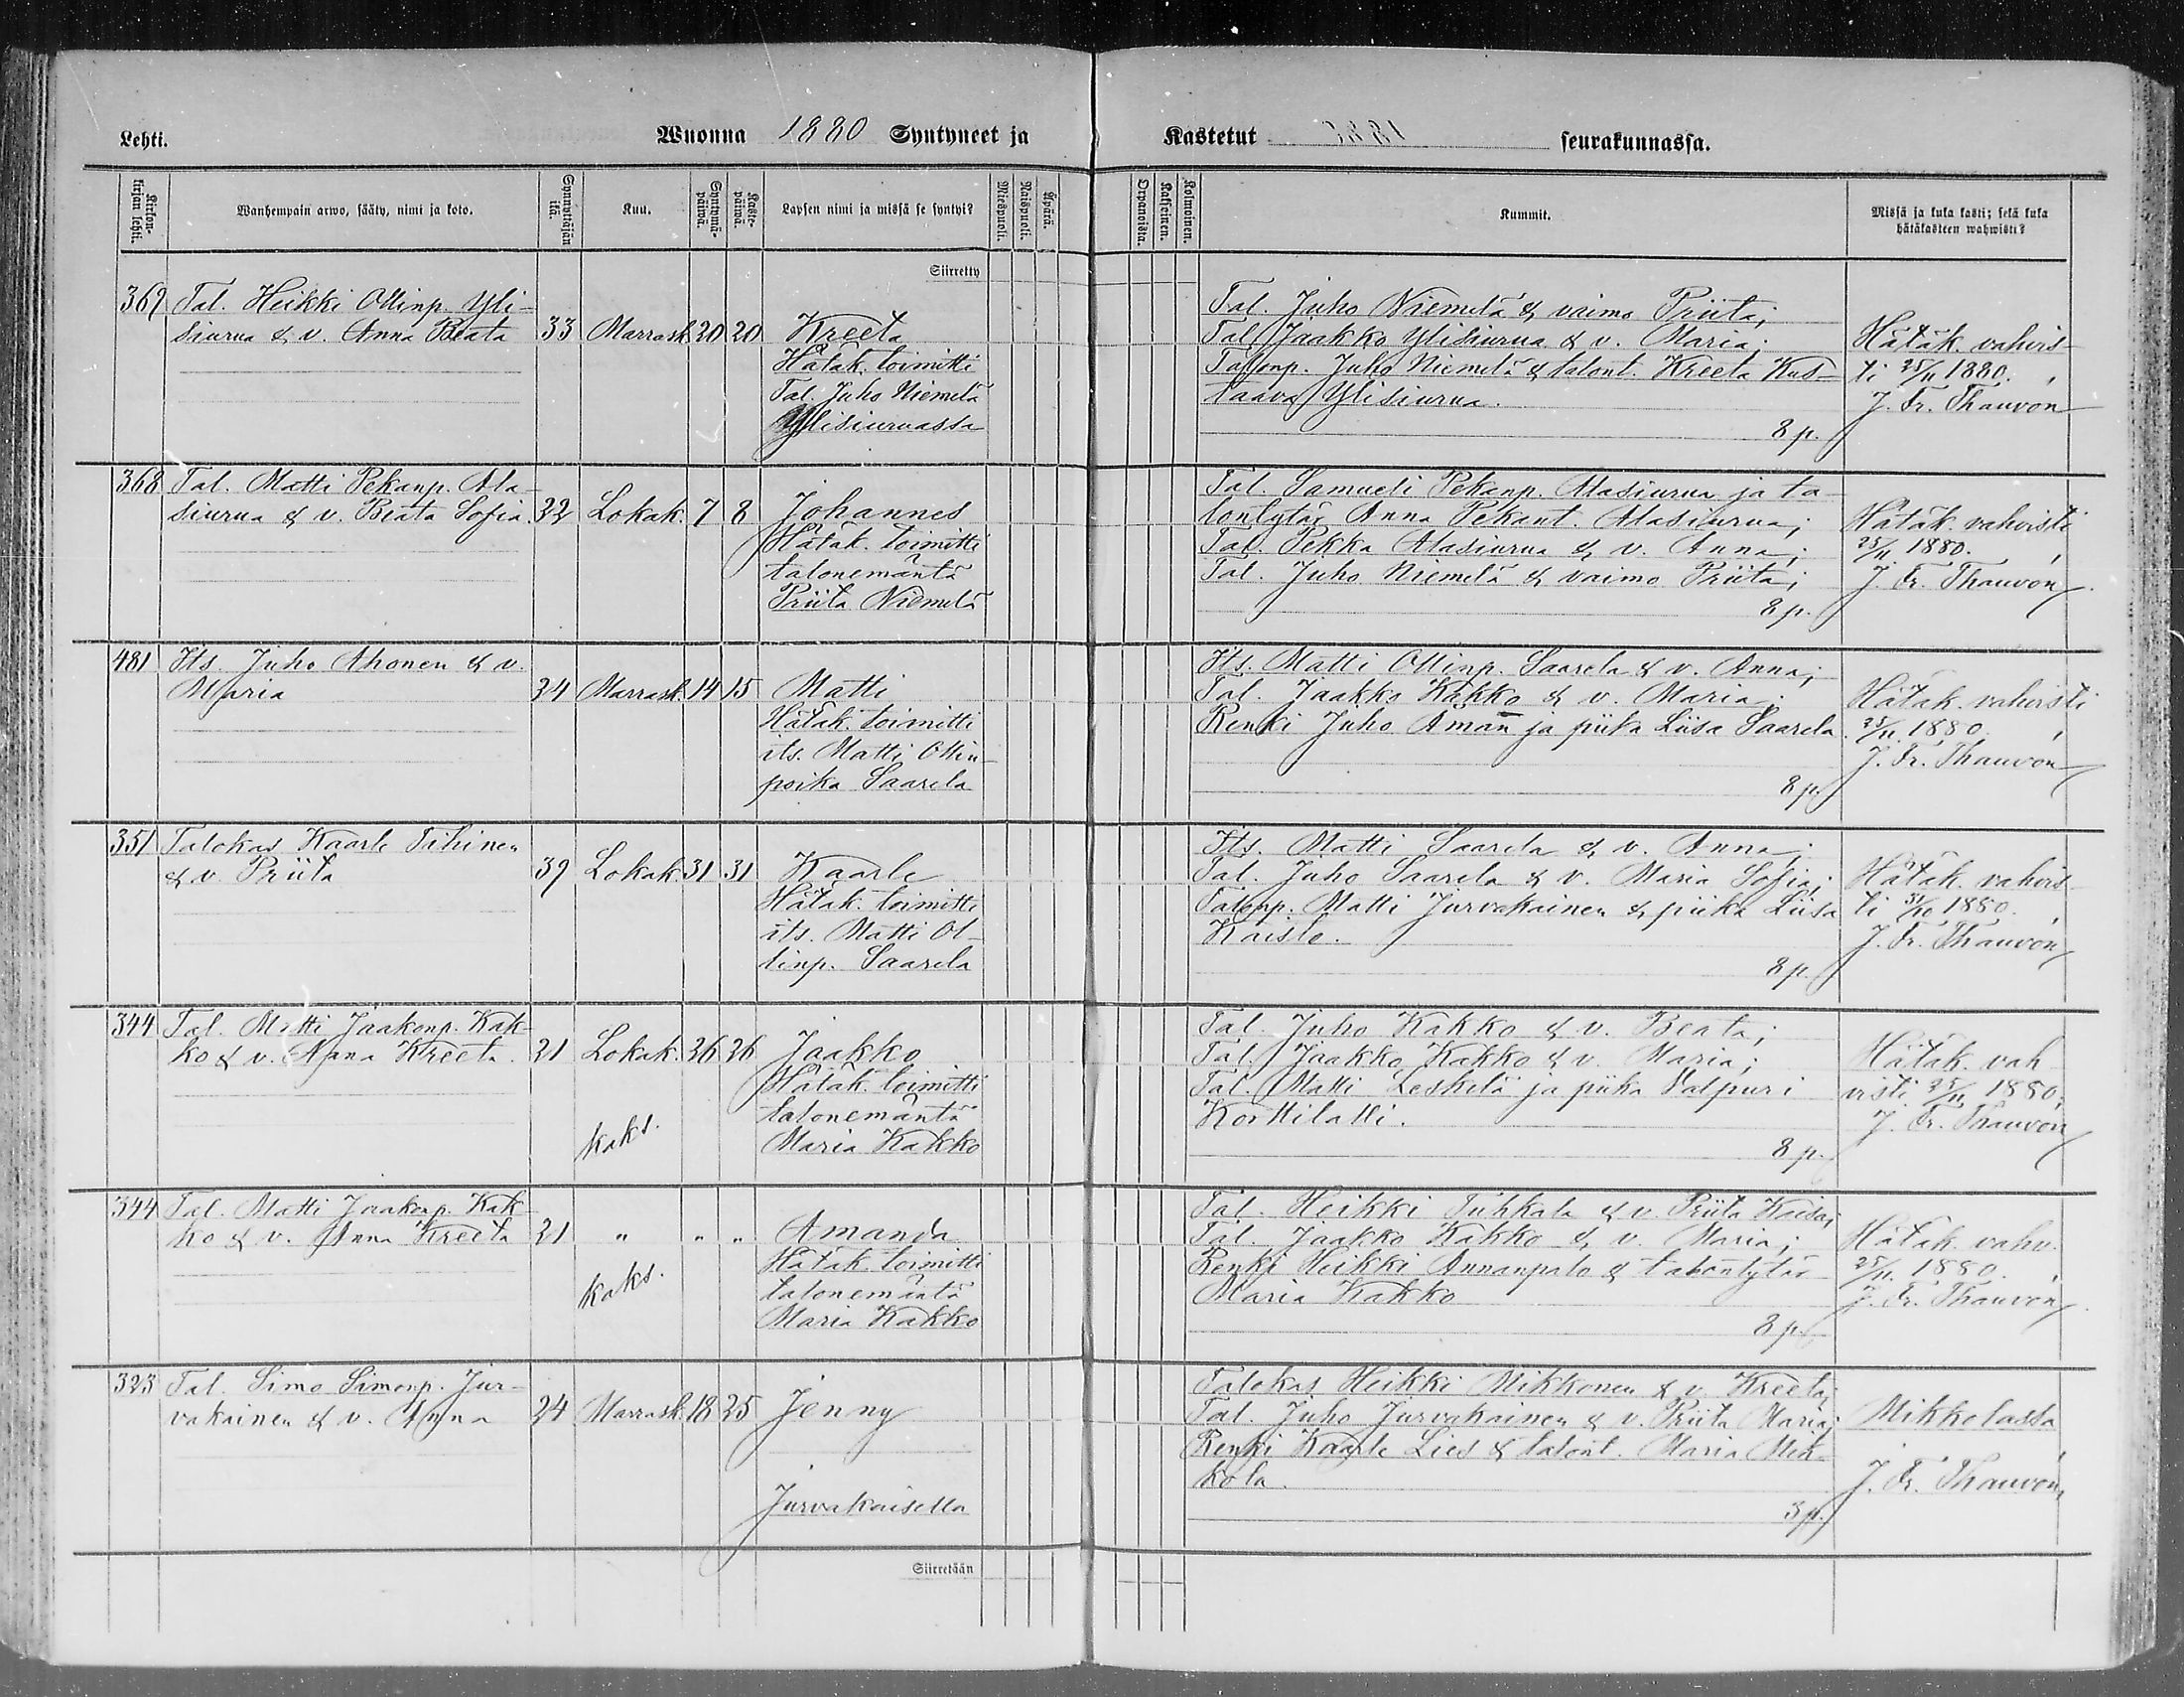 Lehti.
Wuonna 1880 Syntyneet ja
Kastetut seurakunnassa.
Kirkon-
kirjan lehti.
Wanhempain arwo, sääty, nimi ja koto.
Synnyttäjän
ikä.
Kuu.
Syntymä-
päiwä.
Kaste-
päiwä.
Lapsen nimi ja missä se syntyi?
Miespuoli.
Naispuoli.
Äpärä.
Orpanoista.
Kaksoinen.
Kolmoinen.
Kummit.
Missä ja kuka kasti; sekä kuka
hätäkasteen wahwisti?
Siirretty
369 Tal. Heikki Ollinp. Yli-
siurua & v. Anna Beata 33 Marrask. 20 20 Kreeta
Hätäk. toimitti
Tal. Juho Niemelä
Ylisiuruassa
Tal. Juho Niemelä & vaimo Priita;
Tal. Jaakko Ylisiurua & v. Maria;
Talonp. Juho Niemelä & talont. Kreeta Kus-
taava Ylisiurua.
8 p.
Hätäk. vahvis-
ti 25/11 1880.
J. Fr. Thauvón
368 Tal. Matti Pekanp. Ala-
siurua & v. Beata Sofia. 32 Lokak. 7 8 Johannes
Hätäk. toimitti
talonemäntä
Priita Niemelä
Tal. Samueli Pekanp. Alasiurua ja ta-
lontytär Anna Pekant. Alasiurua;
Tal. Pekka Alasiurua & v. Anna;
Tal. Juho Niemelä & vaimo Priita;
8 p.
Hätäk. vahvisti
25/11 1880.
J. Fr. Thauvón
481 Its. Juho Ahonen & v.
Maria 34 Marrask. 14 15 Matti
Hätäk. toimitti
its. Matti Ollin-
poika Saarela
Its. Matti Ollinp. Saarela & v. Anna;
Tal. Jaakko Kakko & v. Maria;
Renki Juho Aman ja piika Liisa Saarela.
8 p.
Hätäk. vahvisti
25/11 1880.
J. Fr. Thauvón
351 Talokas Kaarle Tihinen
& v. Priita 39 Lokak. 31 31 Kaarle
Hätäk. toimitti
its. Matti Ol-
linp. Saarela
Its. Matti Saarela & v. Anna;
Tal. Juho Saarela & v. Maria Sofia;
Talonp. Matti Jurvakainen & piika Liisa
Kaisto.
8 p.
Hätäk. vahvis-
ti 31/10 1880.
J. Fr. Thauvón
344 Tal. Matti Jaakonp. Kak-
ko & v. Anna Kreeta. 21 Lokak. 26 26 Jaakko
Hätäk. toimitti
talonemäntä
kaks.
Maria Kakko
Tal. Juho Kakko & v. Beata;
Tal. Jaakko Kakko & v. Maria;
Tal. Matti Leskelä ja piika Valpuri
Korttilatti.
8 p.
Hätäk. vah
visti 25/11 1880;
J. Fr. Thauvón
344 Tal. Matti Jaakonp. Kak-
ko & v. Anna Kreeta 21 " " " Amanda
Hätäk. toimitti
kaks.
talonemäntä
Maria Kakko
Tal. Heikki Tuhkala & v. Priita Kaisa;
Tal. Jaakko Kakko & v. Maria;
Renki Heikki Annanpalo & talontytär
Maria Kakko
8 p.
Hätäk. vahv.
25/11. 1880.
J. Fr. Thauvón
323 Tal. Simo Simonp. Jur-
vakainen & v. Anna 24 Marrask. 18 25 Jenny
Jurvakaisella
Talokas Heikki Mikkonen & v. Kreeta;
Tal. Juho Jurvakainen & v. Priita Maria;
Renki Kaarle Lies & talont. Maria Mik-
kola.
3 p.
Mikkolassa
J. Fr. Thauvón
Siirretään